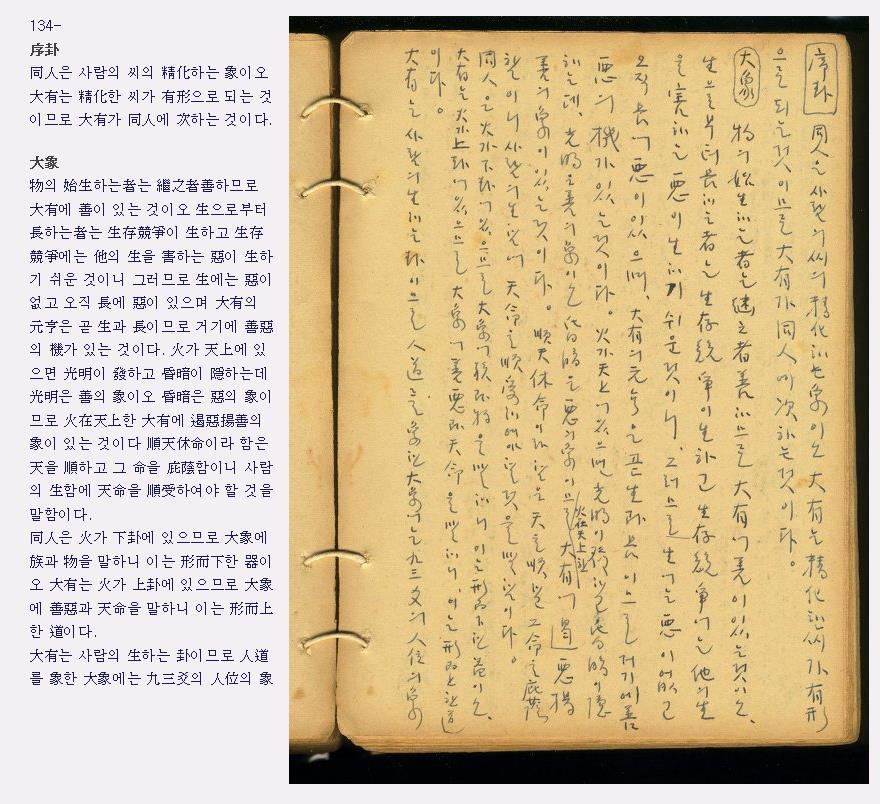 134-
序卦
同人은 사람의 씨의 精化하는 象이오
大有는 精化한 씨가 有形으로 되는 것
이므로 大有가 同人에 次하는 것이다.
大象
物의 始生하는者는 繼之者善하므로
大有에 善이 있는 것이오 生으로부터
長하는者는 生存競爭이 生하고 生存
競爭에는 他의 生을 害하는 惡이 生하
기 쉬운 것이니 그러므로 生에는 惡이
없고 오직 長에 惡이 있으며 大有의
元亨은 곧 生과 長이므로 거기에 善惡
의 機가 있는 것이다. 火가 天上에 있
으면 光明이 發하고 昏暗이 隱하는데
光明은 善의 象이오 昏暗은 惡의 象이
므로 火在天上한 大有에 遏惡揚善의
象이 있는 것이다 順天休命이라 함은
天을 順하고 그 命을 庇蔭함이니 사람
의 生함에 天命을 順受하여야 할 것을
말함이다.
同人은 火가 下卦에 있으므로 大象에
族과 物을 말하니 이는 形而下한 器이
오 大有는 火가 上卦에 있으므로 大象
에 善惡과 天命을 말하니 이는 形而上
한 道이다.
大有는 사람의 生하는 卦이므로 人道
를 象한 大象에는 九三爻의 人位의 象
序卦 同人은 사람의 씨의 精化하는 象이오 大有는 精化한 씨가 有形
으로 되는 것이므로 大有가 同人에 次하는 것이다.
大象 物의 始生하는 者는 繼之者善하므로 大有에 善이 있는 것이오,
生으로부터 長하는 者는 生存競爭이 生하고 生存競爭에는 他의 生
을 害하는 惡이 生하기 쉬운 것이니, 그러므로 生에는 惡이 없고
오직 長에 惡이 있으며, 大有의 元亨은 곧 生과 長이므로 거기에 善
惡의 機가 있는 것이다. 火가 天上에 있으면 光明이 發하고 昏暗이 隱
하는데, 光明은 善의 象이오 昏暗은 惡의 象이므로 火在天上한 大有에 遏惡揚
善의 象이 있는 것이다. 順天休命이라 함은 天을 順하고 그 命을 庇蔭
함이니 사람의 生함에 天命을 順受하여야 할 것을 말함이다.
同人은 火가 下卦에 있으므로 大象에 族과 物을 말하니 이는 形而下한 器이오,
大有는 火가 上卦에 있으므로 大象에 善惡과 天命을 말하니, 이는 形而上한 道
이다.
大有는 사람의 生하는 卦이므로 人道를 象한 大象에는 九三爻의 人位의 象